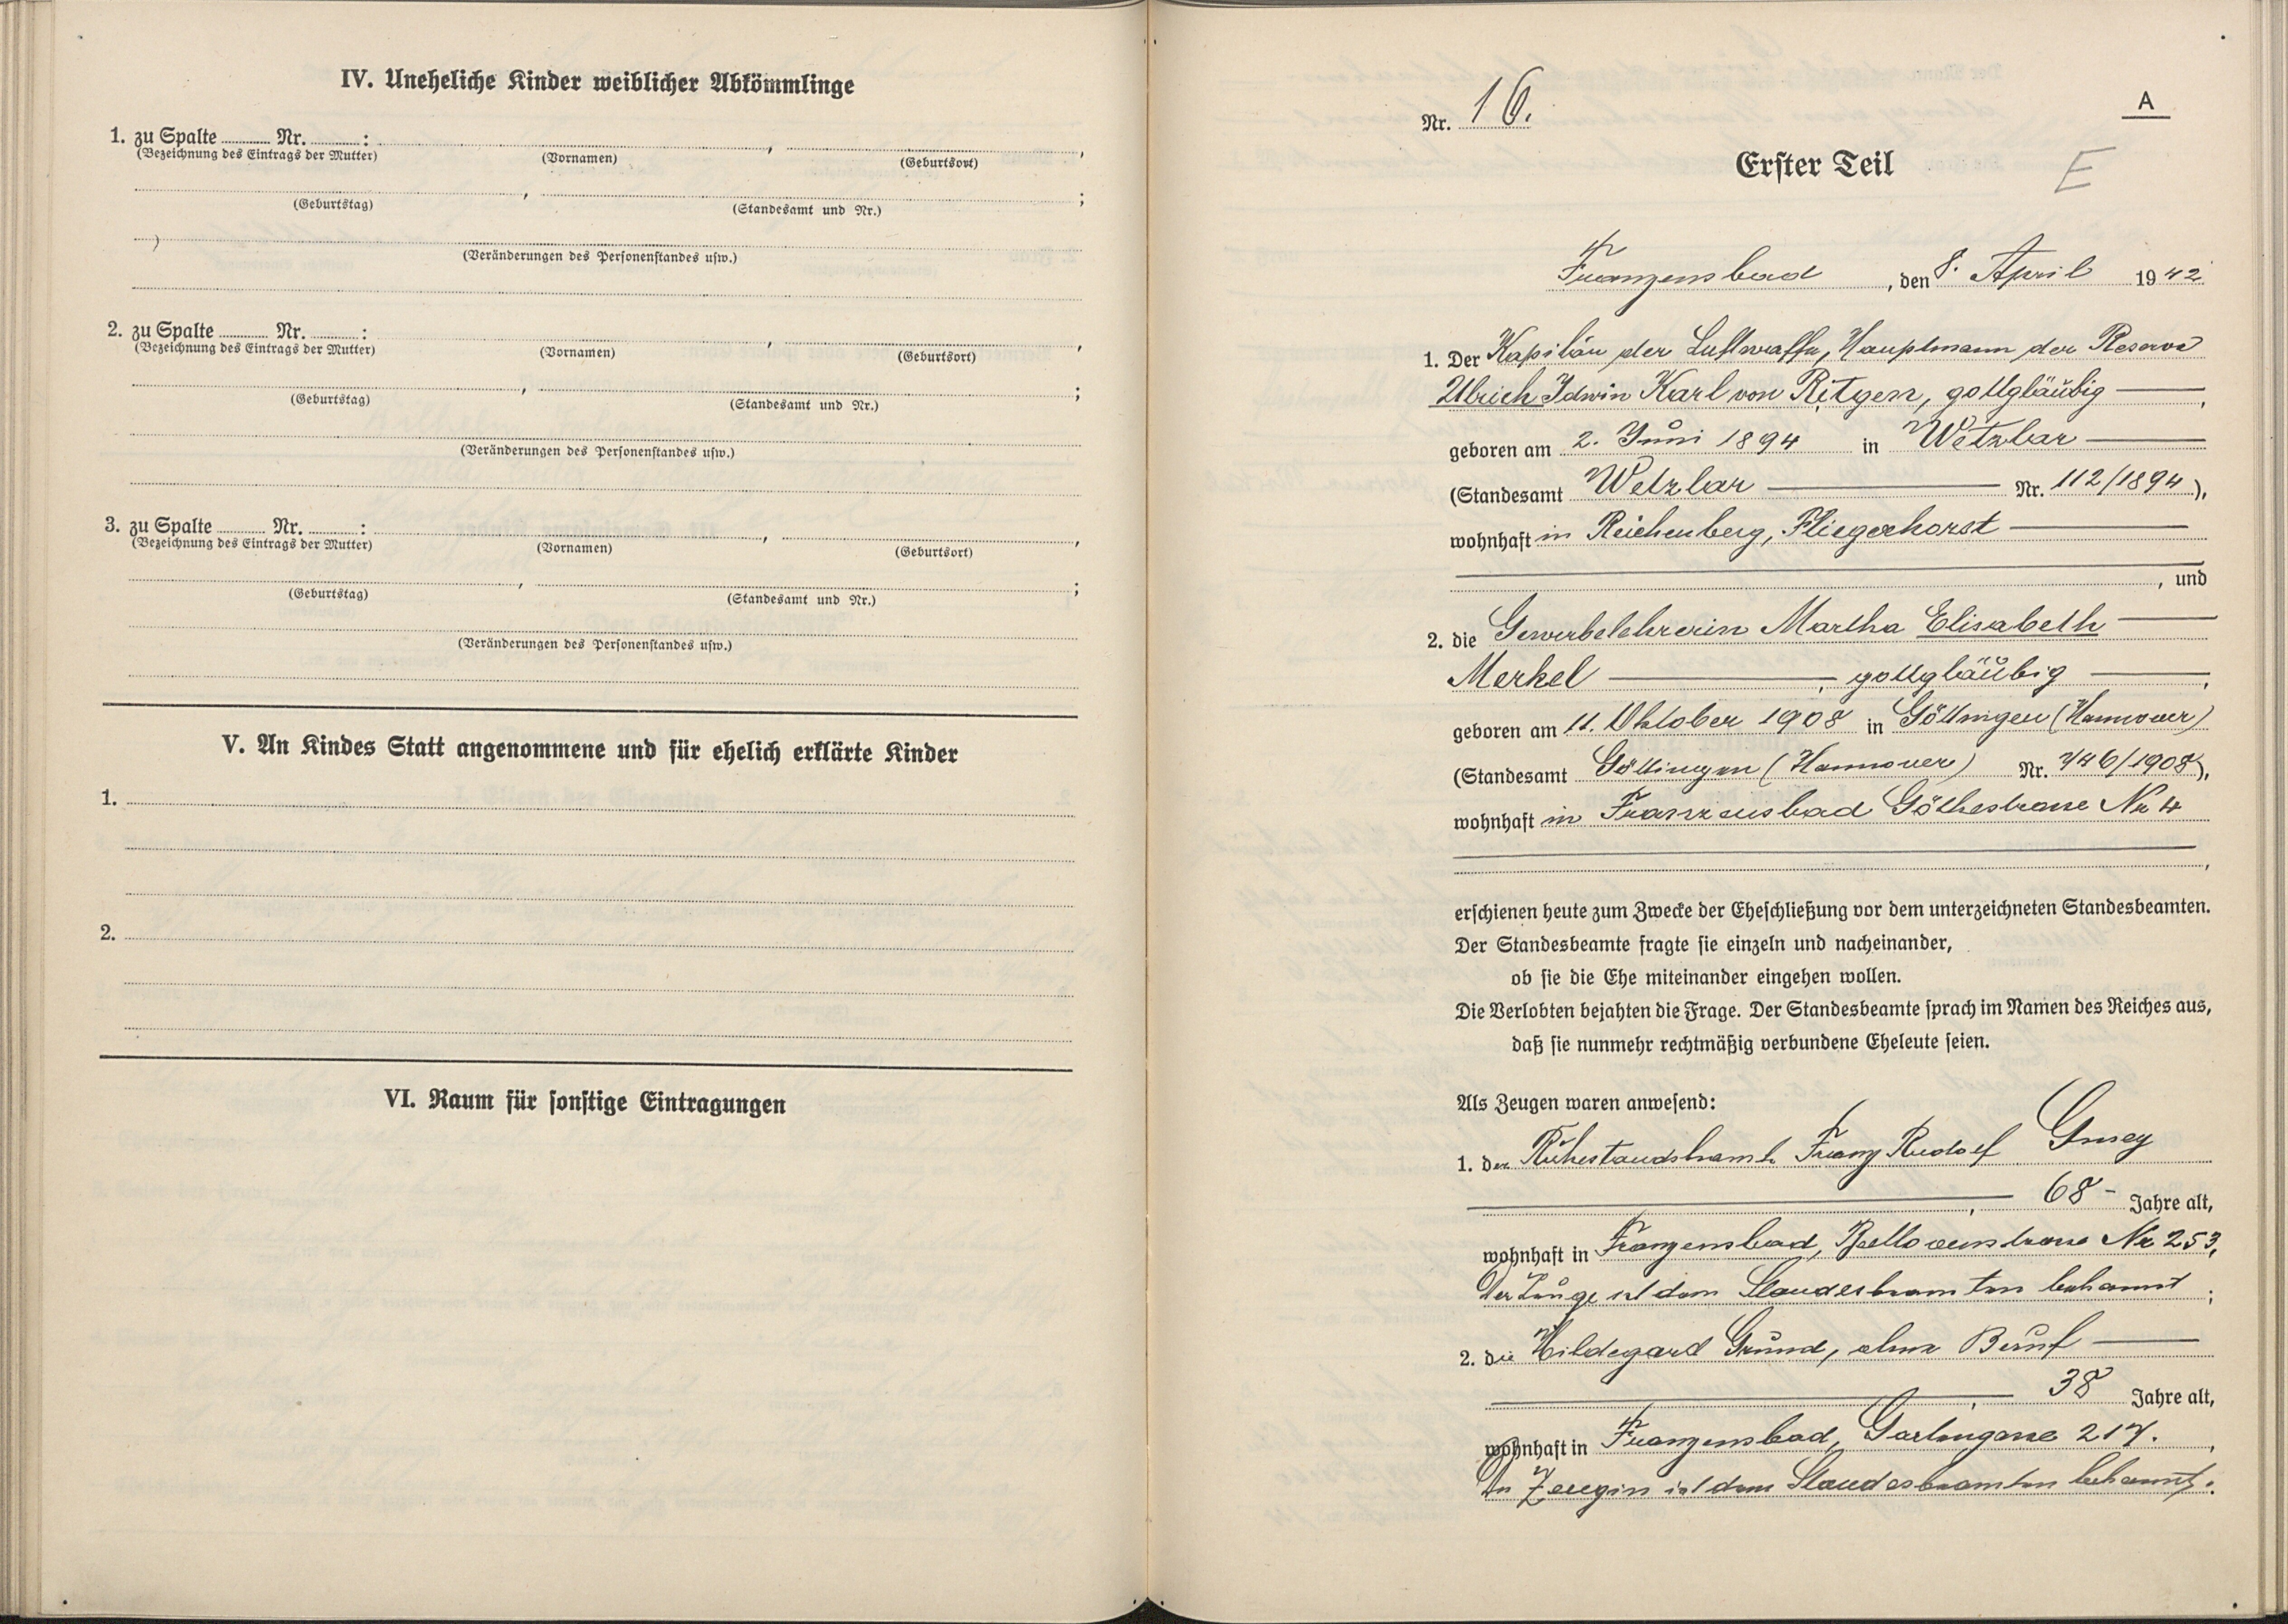 IV. Uneheliche Kinder weiblicher Abkömmlinge
1. zu Spalte ........ Nr. ........ :
(Bezeichnung des Eintrags der Mutter) (Vornamen) , (Geburtsort) ,
(Geburtstag) , (Standesamt und Nr.) ;
(Veränderungen des Personenstandes usw.)
2. zu Spalte ........ Nr. ........ :
(Bezeichnung des Eintrags der Mutter) (Vornamen) , (Geburtsort) ,
(Geburtstag) , (Standesamt und Nr.) ;
(Veränderungen des Personenstandes usw.)
3. zu Spalte ........ Nr. ........ :
(Bezeichnung des Eintrags der Mutter) (Vornamen) , (Geburtsort) ,
(Geburtstag) , (Standesamt und Nr.) ;
(Veränderungen des Personenstandes usw.)
V. An Kindes Statt angenommene und für ehelich erklärte Kinder
1.
2.
VI. Raum für sonstige Eintragungen
A
Nr. 16.
Erster Teil
E
Franzensbad, den 8. April 1942
1. Der Kapitän der Luftwaffe, Hauptmann der Reserve
Ulrich Edwin Karl von Ritgen, gottgläubig ,
geboren am 2. Juni 1894 in Wetzlar
(Standesamt Wetzlar Nr. 112/1894),
wohnhaft in Reichenberg, Fliegerhorst
, und
2. die Gewerbelehrerin Martha Elisabeth
Merkel , gottgläubig ,
geboren am 11. Oktober 1908 in Göttingen (Hannover)
(Standesamt Göttingen (Hannover) Nr. 746/1908),
wohnhaft in Franzensbad Göthestrasse Nr 4
,
erschienen heute zum Zwecke der Eheschließung vor dem unterzeichneten Standesbeamten.
Der Standesbeamte fragte sie einzeln und nacheinander,
ob sie die Ehe miteinander eingehen wollen.
Die Verlobten bejahten die Frage. Der Standesbeamte sprach im Namen des Reiches aus,
daß sie nunmehr rechtmäßig verbundene Eheleute seien.
Als Zeugen waren anwesend:
1. der Franz Rudolf
, 68 - Jahre alt,
wohnhaft in Franzensbad, Nr 253,
Der Zeuge ist dem Standesbeamten bekannt ;
2. die Hildegard Grund, ohne Beruf
, 38 Jahre alt,
wohnhaft in Franzensbad, Gartengasse 217. ,
Die Zeugin ist dem Standesbeamten bekannt.